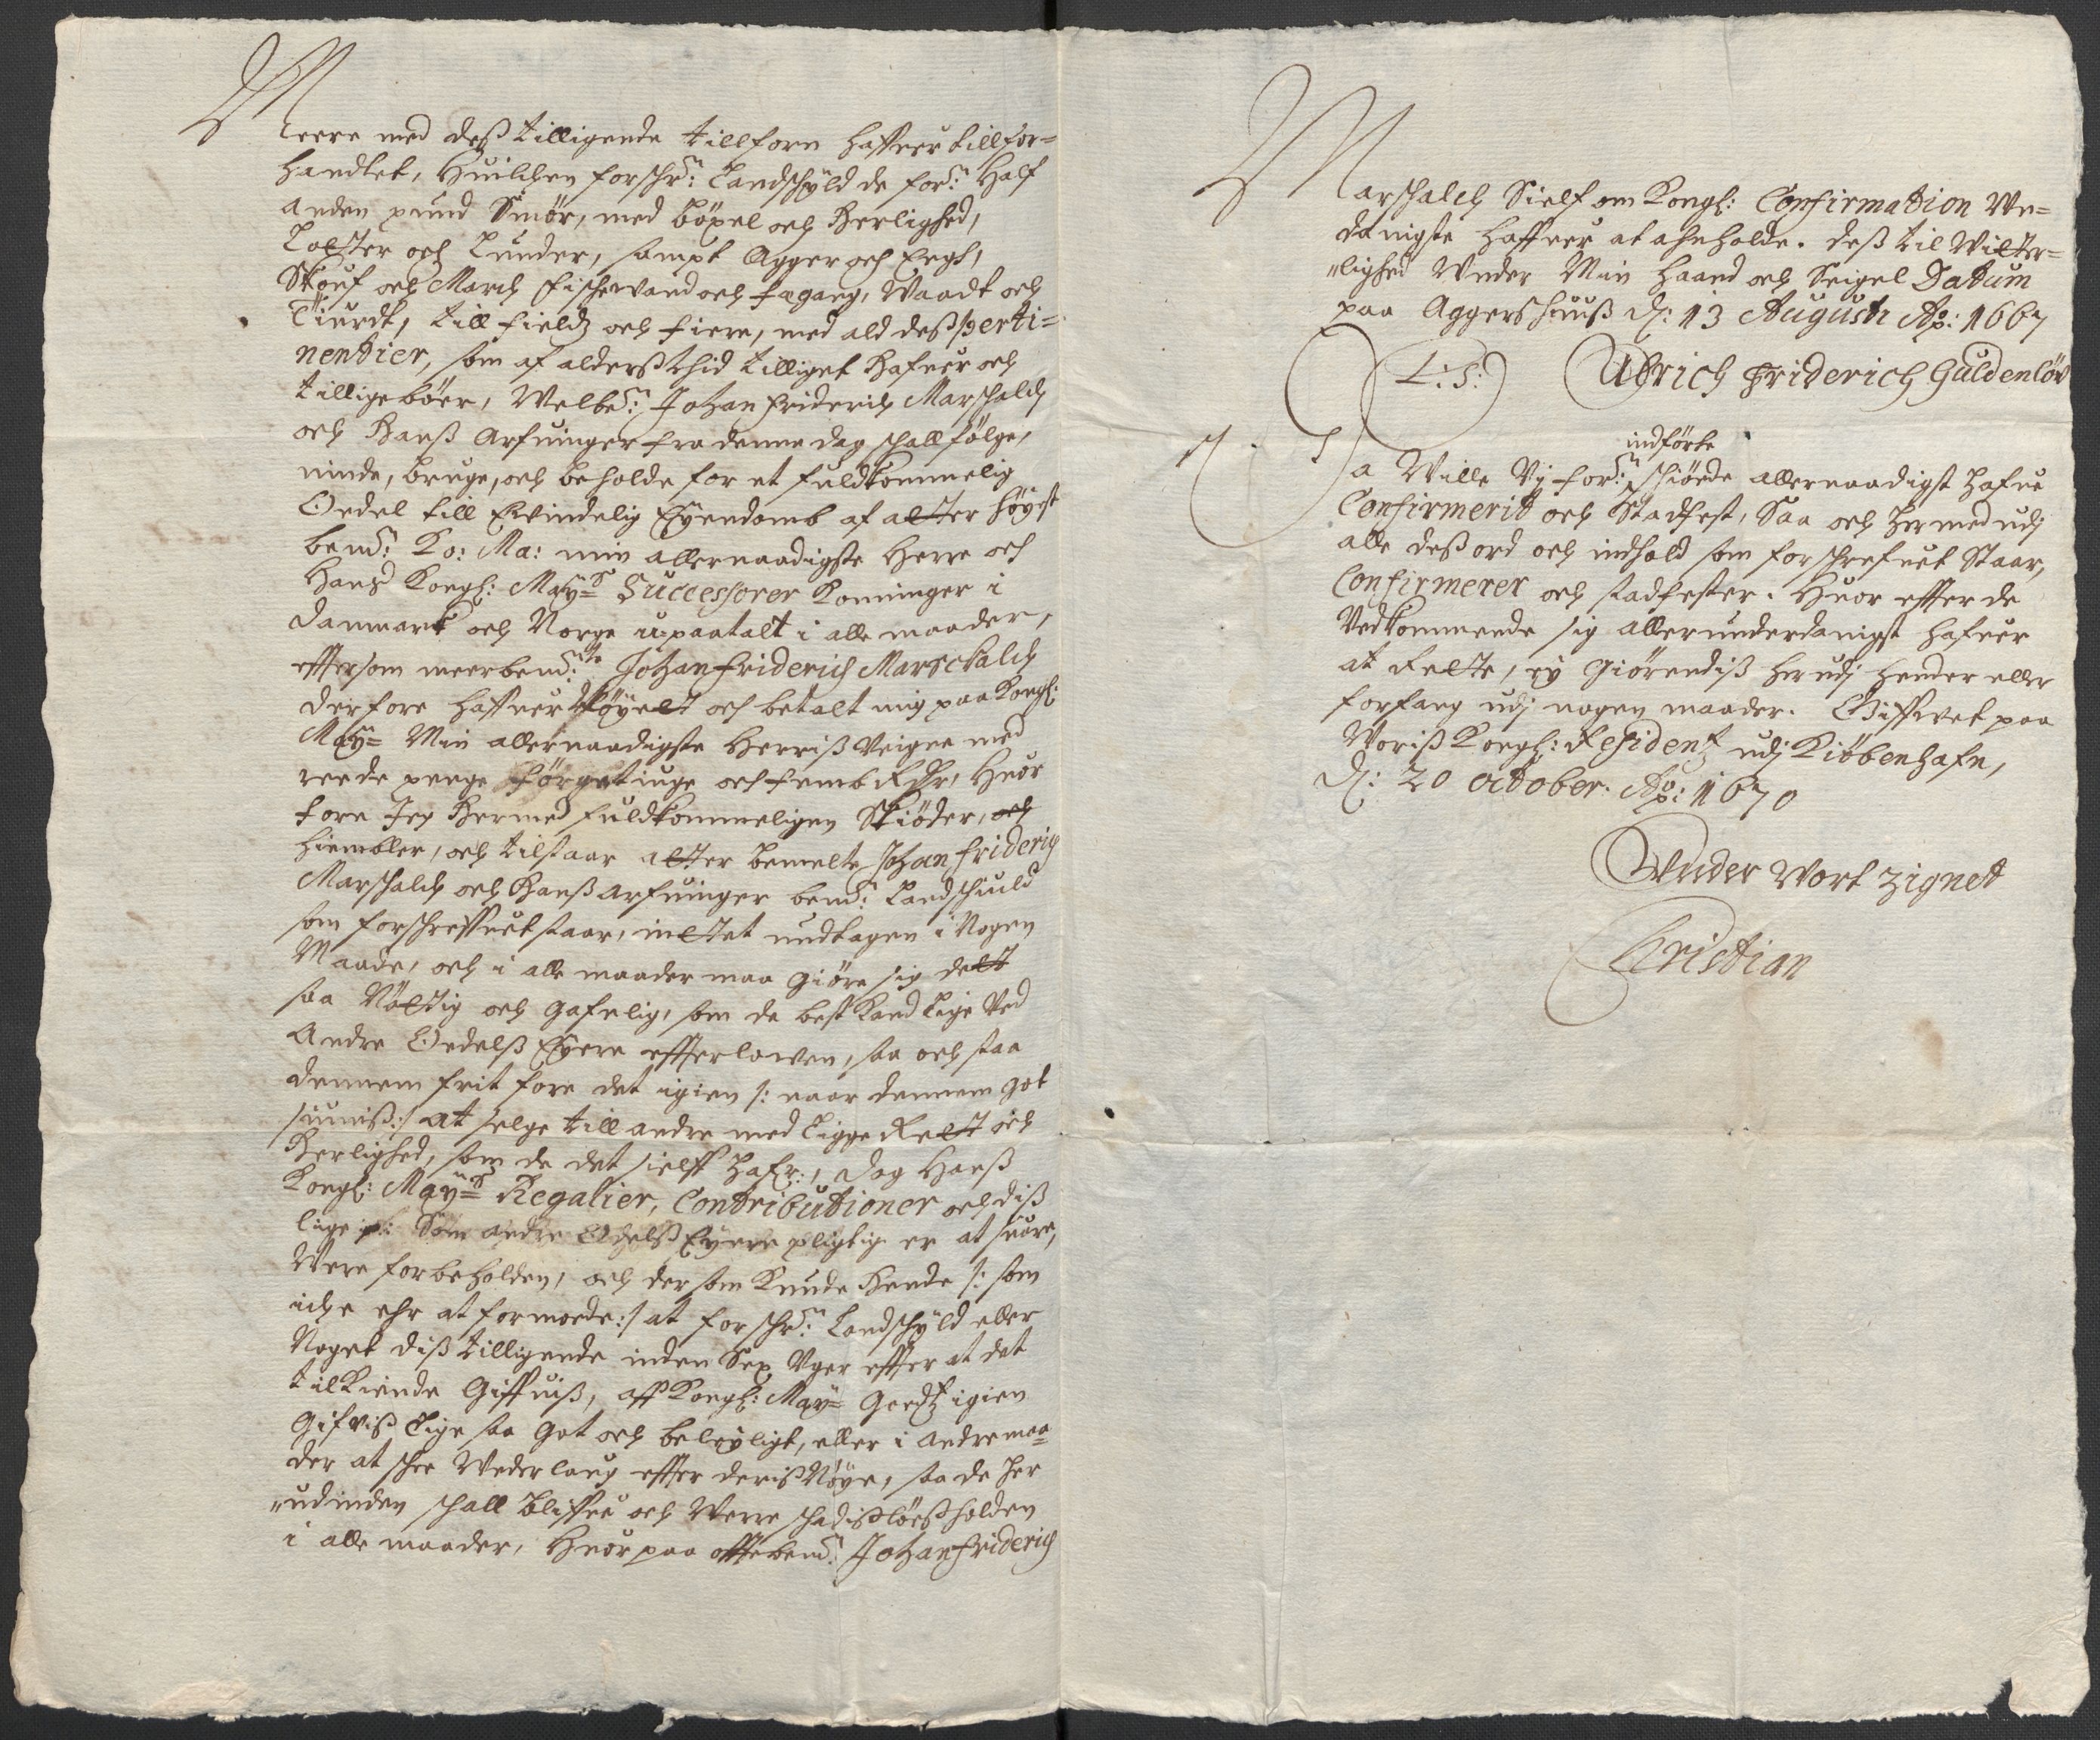 Meere med deß tilligende tillforn haffuer tillfor=
handlet, Huilchen forschr:ne Landschÿld de for:ne Half
anden pund Smör, med böxel och Herlighed,
Lotter och Lunder, sampt Agger och Engh,
Skouf och March fischevand och fægang, Vaadt och
Tiurdt, till fieldz och fiere, med ald deß perti=
nentier, som af alderß thid tilliget Hafuer och
tilligebör, Welbe:ne Johan Friderich Marschalch
och Hanß Arfuinger fra denne dag schall fölge,
niude, bruge, och beholde for et fuldkommelig
Oedel till Ewindelig Eÿendomb af atter höyst
bem:te Ko: Ma: min allernaadigste Herre och
Hans Kongl: Maÿ:s Successorer Konninger i
Danmark och Norge u-paatalt i alle maader,
effterson meerbem:te Johan Friderich Marschalch
derfore haffuer Nöyett och betalt mig paa Kongl:
Maÿ: Min allernaadigste Herriß Veigne med
reede penge förgetiuge och femb Rdr, Huor
fore Jeg Hermed fuldkommeligen Skiöder, och
hiembler, och tilstaar atter bemelte Johan Friderich
Marschalch och Hanß Arfuinger bem:te Landschiuld
som forschreffuet staar, inttet undtagen i Nogen
Maade, och i alle maader maa giöre sig dett
saa Nöttig och gafnlig, som de best kand Lige Ved
Andre Oedelß Eÿere effter lowen, saa och staa
dennem frit fore det igien /: naar dennem got
siuniß :/ at selge till andre med Ligge Rett och
Herlighed, som de det sielff hafr:, dog Hanß
Kongl: Maÿ:ts Regalier, Contributioner och diß
lige p: Som andre Odelß Eÿere pligtig er at suare,
Were forbeholden, och dersom Kunde Hende /: som
iche ehr at formoede :/ at forschr:ne Landschÿld eller
Noget diß tilligende inden Sex Uger effter at det
tilkiende Giffuiß, aff Kongl: Maÿ: Goedtz igien
Gifviß Lige saa Got och beleÿligt, eller i andre maa=
der at schee Wederlaug effter deriß Nöÿe, saa de her
"udinden schall bliffue och Werre schadißlöeß holden
i alle maader, Huorpaa offtebem:te Johan Friderich
Marschalch Sielf om Kongl: Confirmation Un=
danigste haffuer at anholde. Deß til Witter=
"lighed Under Min Haand och Seigel Datum
paa Aggershuuß d: 13 Augusti Ao: 1667
L: S: Ulrich Friderich Guldenlöw
indförte
Da Wille Vj for:ne schiöede allernaadigst hafue
Confirmerit och Stadfest, Saa och Hermed udj
alle deß ord och indhold som forschrefuet Staar,
Confirmerer och stadfester. Huor effter de
Vedkommende sig allerunderdanigst hafuer
at Rette, eÿ Giörendiß her udj hinder eller
forfang udj nogen maader. Giffvet paa
Voriß Kongl: Residentz udj Kiöbenhafn,
d: 20 october. Ao: 1670
Under Vort Zignet
Christian